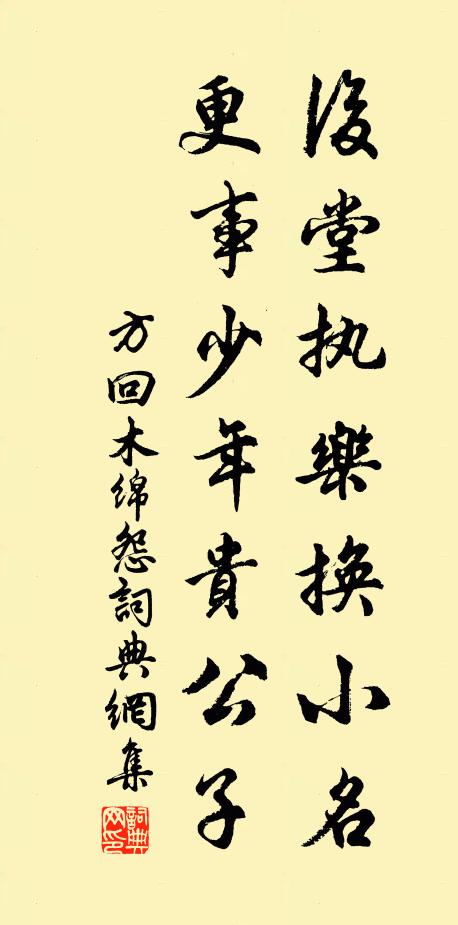 後堂执樂換小名
更事少年貴公子
方回木綿怨詞典網集
詞典网印